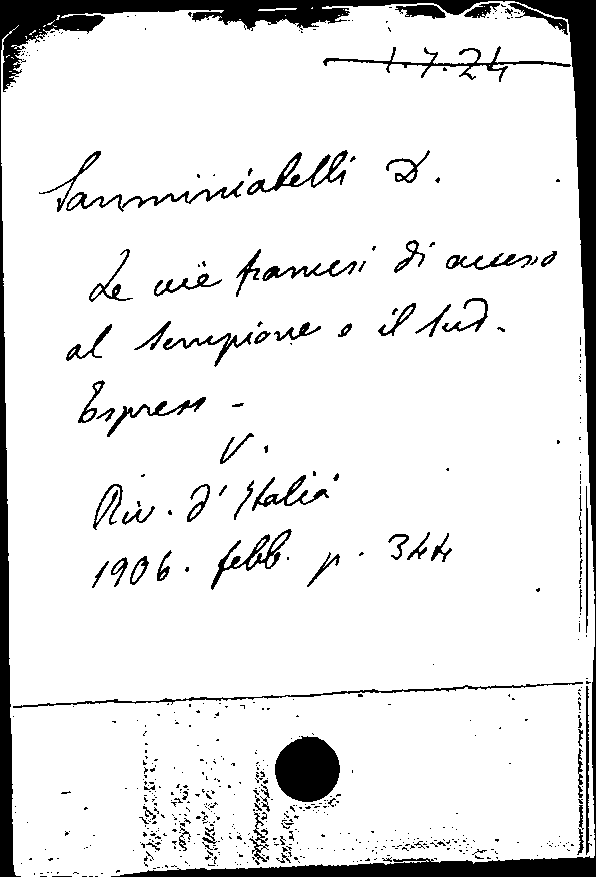 1.7.24
Sanminiatelli D.
Le vie francesi di accesso
al Sempione e il Sud-
Express -
V.
Riv. d'Italia
1906. febb. p. 344